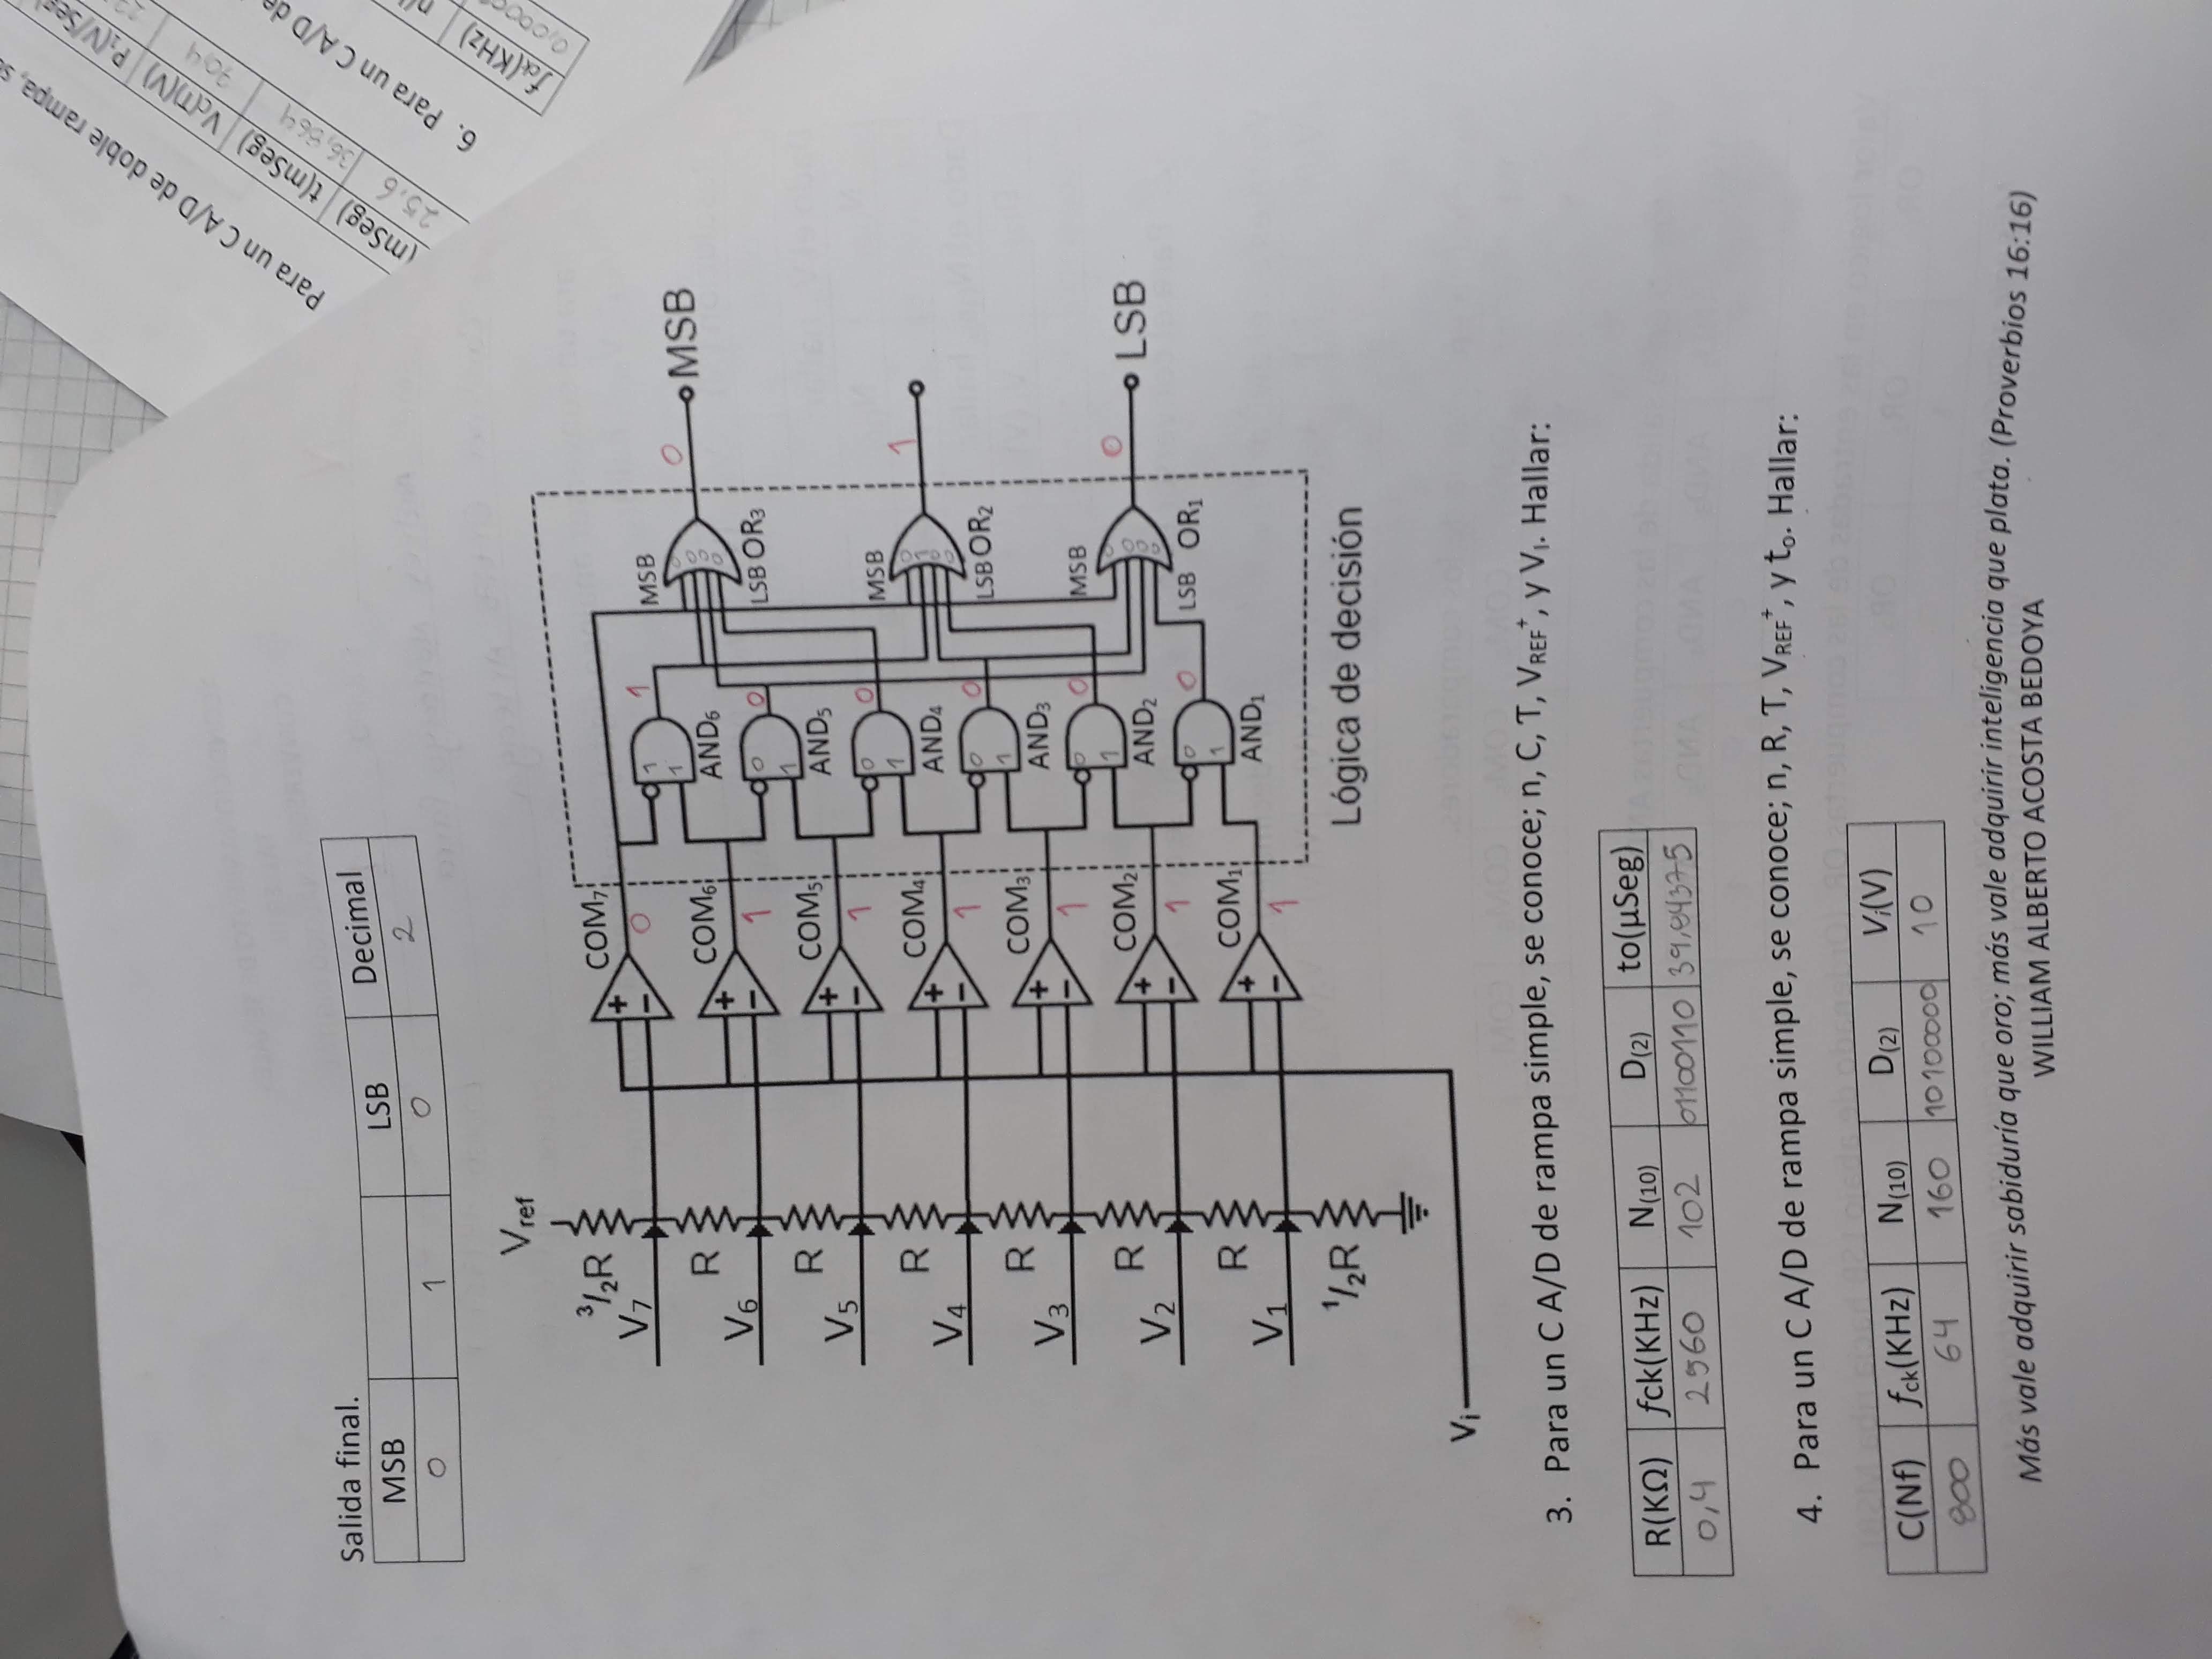 Salida final.
MSB LSB Decimal
0 1 0 2
Vref
3/2R
V7
R
V6
R
V5
R
V4
R
V3
R
V2
R
V1
1/2R
Vi
COM7
0
COM6
1
COM5
1
COM4
1
COM3
1
COM2
1
COM1
1
1
1
AND6
1
0
1
AND5
0
0
1
AND4
0
0
1
AND3
0
0
1
AND2
0
0
1
AND1
0
MSB
LSB OR3
0
MSB
MSB
LSB OR2
1
MSB
LSB OR1
0
LSB
Lógica de decisión
3. Para un C A/D de rampa simple, se conoce; n, C, T, VREF+, y VI. Hallar:
R(KΩ) fck(KHz) N(10) D(2) to(µSeg)
0,4 2560 102 01100110 39,84375
4. Para un C A/D de rampa simple, se conoce; n, R, T, VREF+, y to. Hallar:
C(Nf) fck(KHz) N(10) D(2) Vi(V)
800 64 160 10100000 10
Más vale adquirir sabiduría que oro; más vale adquirir inteligencia que plata. (Proverbios 16:16)
WILLIAM ALBERTO ACOSTA BEDOYA
Para un C A/D de doble rampa,
(mSeg) t(mSeg) Vc(T)(V) P1(V/Seg)
25,6 36,864 70,4
6. Para un C A/D de
fck(KHz)